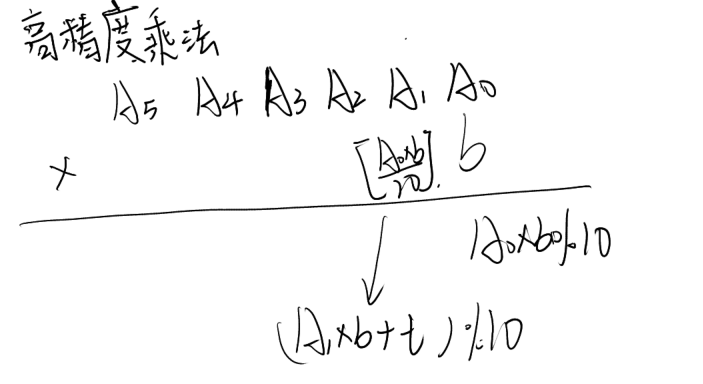 高精度乘法
A5 A4 A3 A2 A1 A0
× [A0×b/10] b
A0×b%10
(A1×b+t)%10